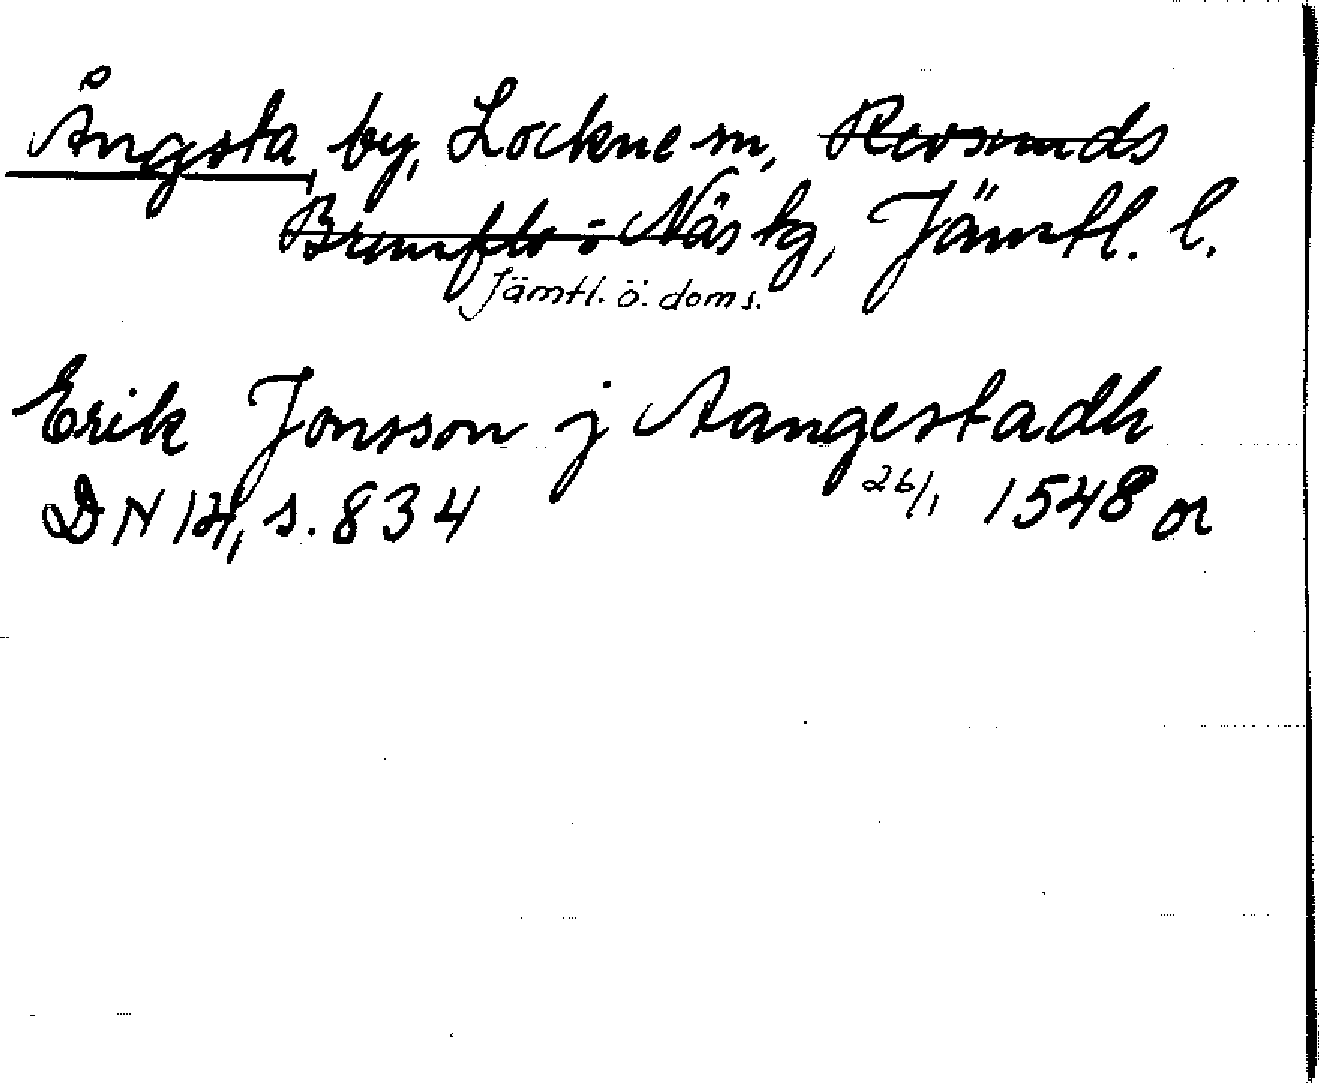 Ångsta by, Lockne sn, Revsunds
Brunflo o Näs tg, Jämtl. l.
Jämtl. ö. doms.
Erik Jonsson j Aangestadh
DN 14, s. 834 26/1 1548 or